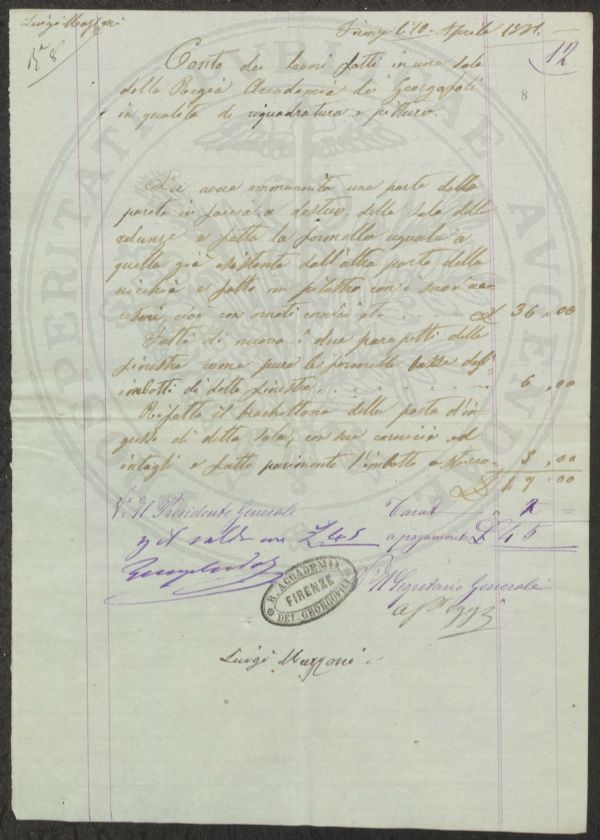 Luigi Mazzoni
Firenze li 10 Aprile
12
N° 8
8
Conto dei lavori fatti in una sala
della Regia Accademia dei Georgofili
in qualità di riquadratura e pittura.
Per avere ammannita una parte della
parete in faccia a destra della sala delle
adunanze e fatta la formella uguale a
quella già esistente dall'altra parte della
nicchia e fatto un pilastro con i suoi
cioè con ornati cornici ecc. £ 36.00
Fatti di nuovo i due parapetti delle
finestre come pure le formelle basse degl'
imbotti di dette finestre 6.00
Rifatto il brachettone della porta d'in-
gresso di detta sala, con sua cornicia ed
intagli e fatto parimente l'imbotto a Noce 5.00
£ 47.00
V° Il Presidente Generale
Tarato 2
a pagamento £ 45
saldo £ 45
R. ACCADEMIA
FIRENZE
DEI GEORGOFILI
Il Segretario Generale
Luigi Mazzoni